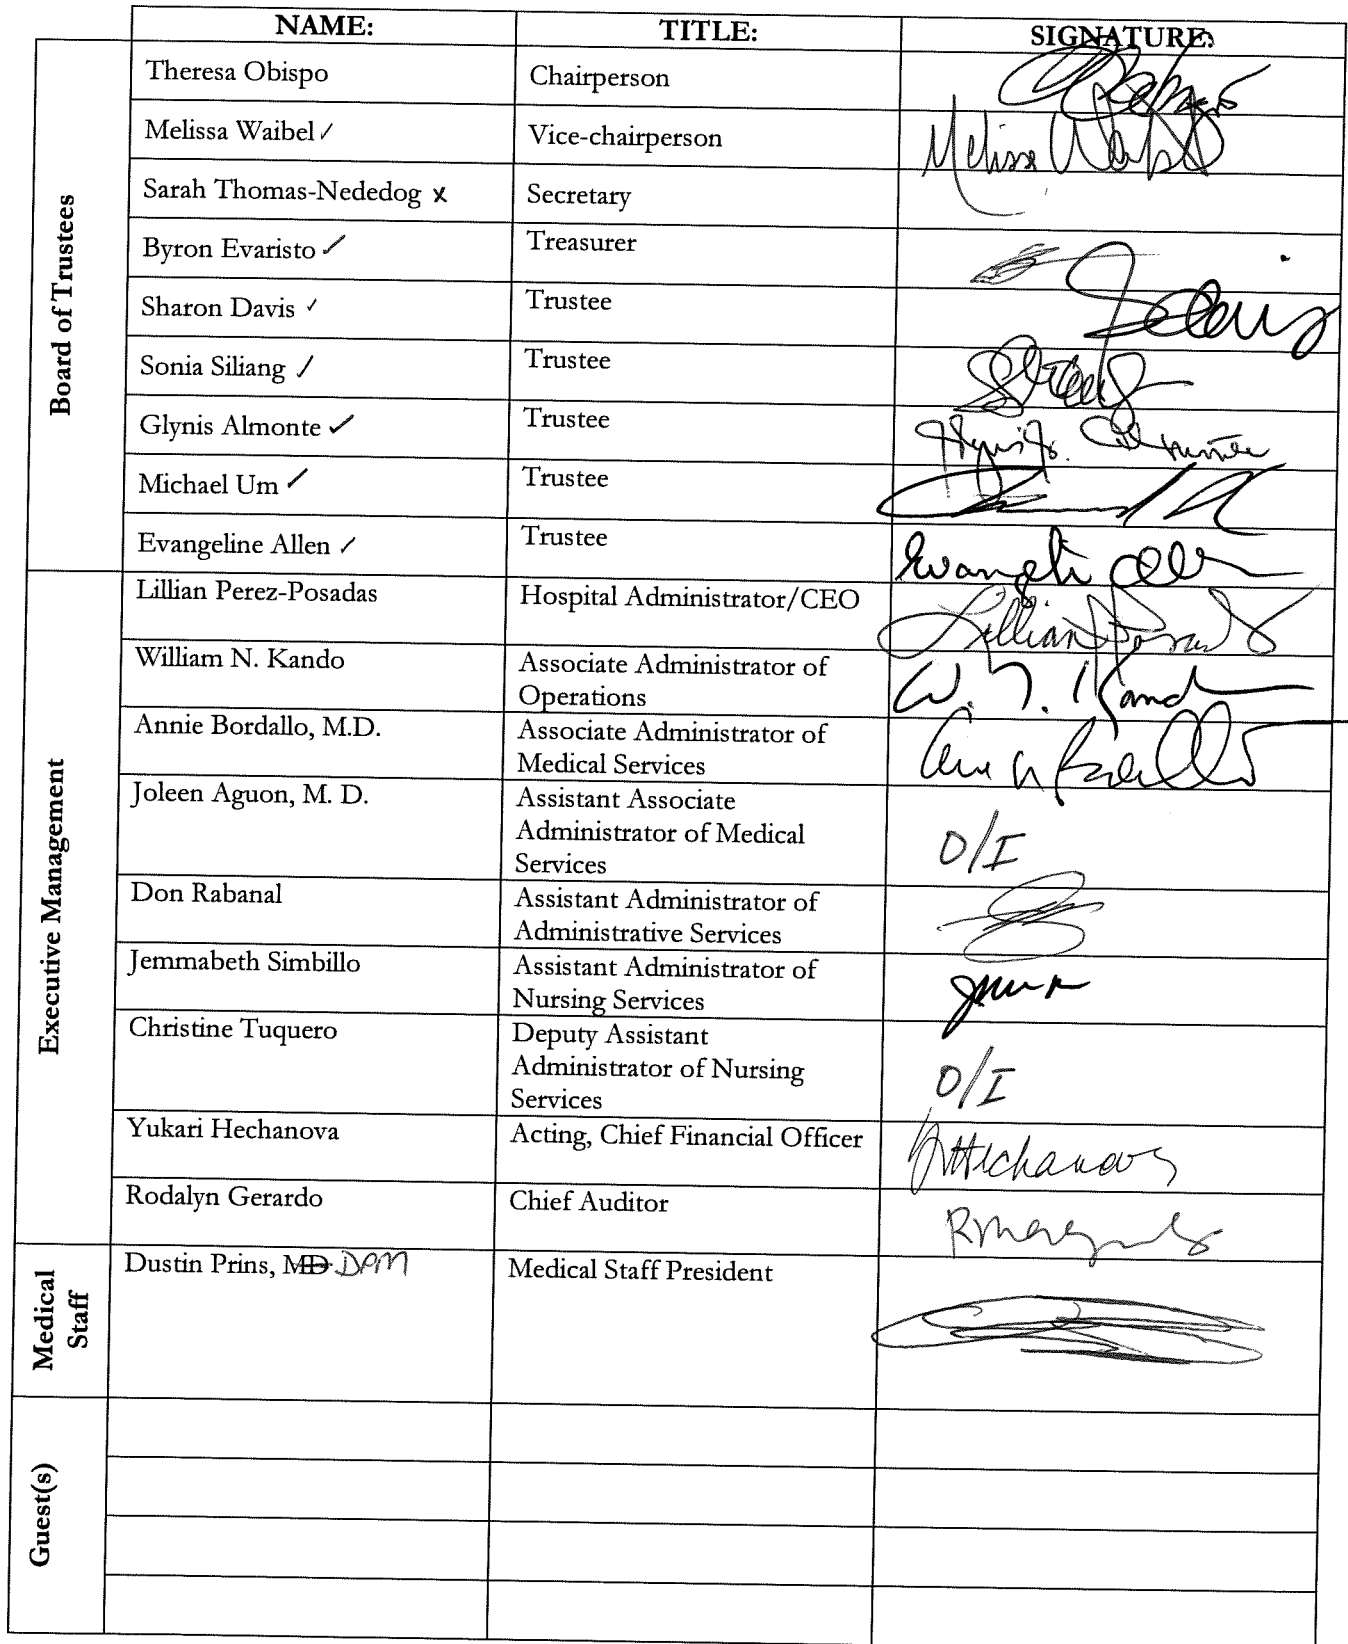 NAME: TITLE: SIGNATURE:
Board of Trustees
Theresa Obispo Chairperson
Melissa Waibel ✓ Vice-chairperson Melissa Waibel
Sarah Thomas-Nededog x Secretary
Byron Evaristo ✓ Treasurer
Sharon Davis ✓ Trustee
Sonia Siliang ✓ Trustee
Glynis Almonte ✓ Trustee
Michael Um ✓ Trustee
Evangeline Allen ✓ Trustee
Executive Management
Lillian Perez-Posadas Hospital Administrator/CEO
William N. Kando Associate Administrator of
Operations
W. N. Kando
Annie Bordallo, M.D. Associate Administrator of
Medical Services
Joleen Aguon, M. D. Assistant Associate
Administrator of Medical
Services
O/I
Don Rabanal Assistant Administrator of
Administrative Services
Jemmabeth Simbillo Assistant Administrator of
Nursing Services
Christine Tuquero Deputy Assistant
Administrator of Nursing
Services
O/I
Yukari Hechanova Acting, Chief Financial Officer YHechanova
Rodalyn Gerardo Chief Auditor
Medical
Staff
Dustin Prins, MD DPM Medical Staff President
Guest(s)